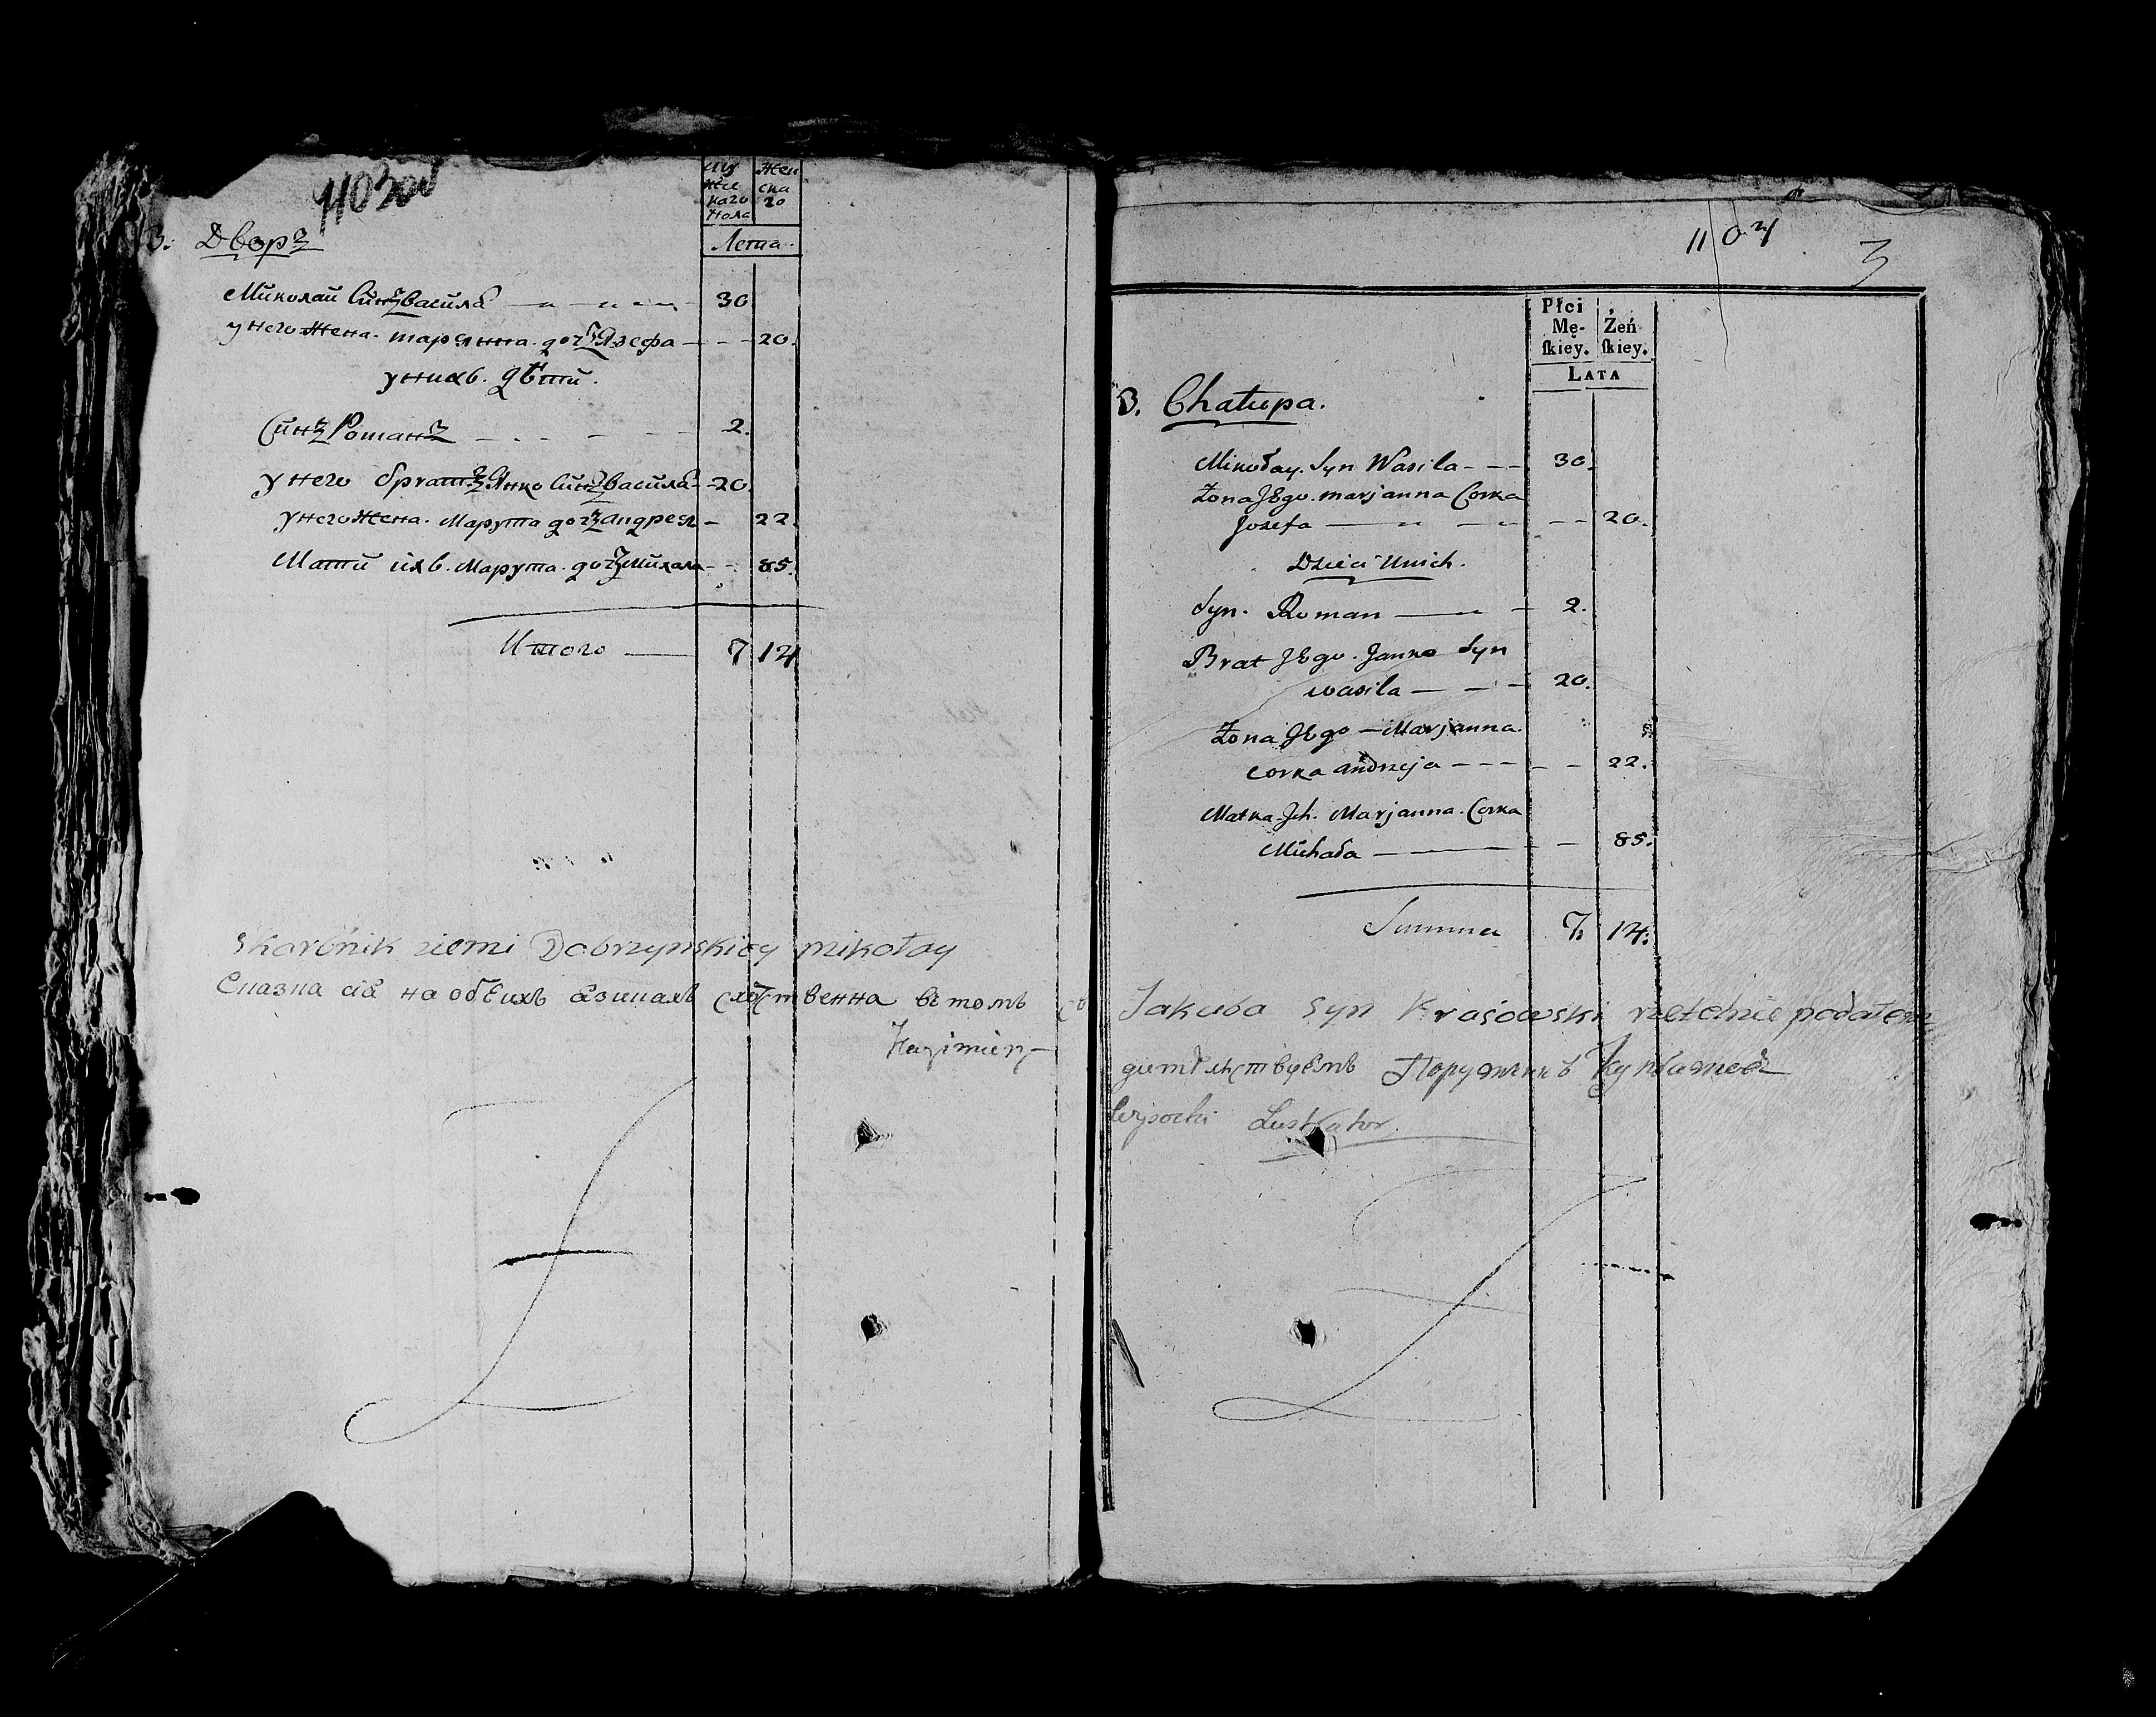 1103об
Му Жен
же ска
каго го
Пола
Лета.
3. Дворъ
Миколай Синъ Василя 30
у него Жена. Марянна. дочъ Язефа 20.
у нихъ. дѣти.
Синъ Романъ 2.
у него братъ Янко Синъ Василя 20.
у него Жена. Марута дочъ Андрея 22.
Мати ихъ. Марута. дочъ Михала 85.
Итого 7 14
Skarbnik ziemi Dobrzynskiey mikołay
Сказка сія на обѣихъ язикахъ сходственна въ томъ св
Kazimierz
1104
3
Płci
Mę- Żeń
ſkiey. ſkiey.
LATA
3. Chałupa.
Mikołay. Syn Wasila 30.
Żona JEgo. marjanna Corka
Jozefa 20.
Dzieci Unich.
Syn. Roman 2.
Brat JEgo. Janko Syn
wasila 20.
Żona JEgo Marjanna.
corka andrzeja 22.
Matka Jch. Marjanna. Corka
Michała 85.
Summa 7. 14.
Jakuba syn Krasowski rzetelnie podałem
дительствуемъ Поручикъ
Wysocki Lustrator.